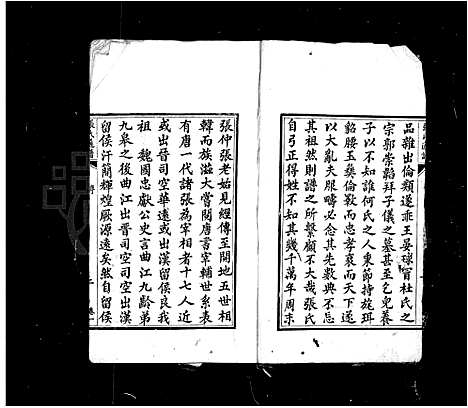 品雜出倫類遂乖王晏璆冒杜氏之
宗郭崇韜拜子儀之墓甚至乞兒養
子以不知誰何氏之人秉節持旄珥
貂腰玉彝倫斁而忠孝衰而天下遂
以大亂夫服疇必念其先數典不忘
其祖然則譜之所繫顧不大哉張氏
自弓正得姓不知其幾千萬年周末
張仲張老始見經傳至開地五世相
韓而族滋大嘗閱唐書宰輔世系表
有唐一代諸張為宰相者十七人近
或出晉司空華遠或出漢留侯良我
祖 魏國忠獻公史言曲江九齡弟
九皋之後曲江出晉司空司空出漢
留侯汗簡輝煌厥源遠矣然自留侯
序
二
卷一